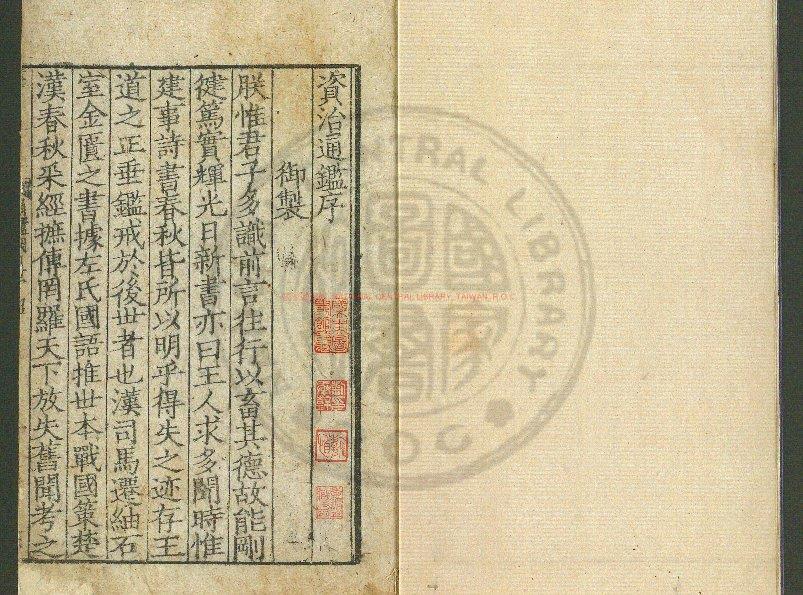 資治通鑑序
御製
朕惟君子多識前言往行以畜其德故能剛
健篤實輝光日新書亦曰王人求多聞時惟
建事詩書春秋皆所以明乎得失之迹存王
道之正垂鑑戒於後世者也漢司馬遷紬石
室金匱之書據左氏國語推世本戰國策楚
漢春秋采經摭傳罔羅天下放失舊聞考之
CENTRAL LIBRARY, TAIWAN, R.O.C
CENTRAL LIBRARY